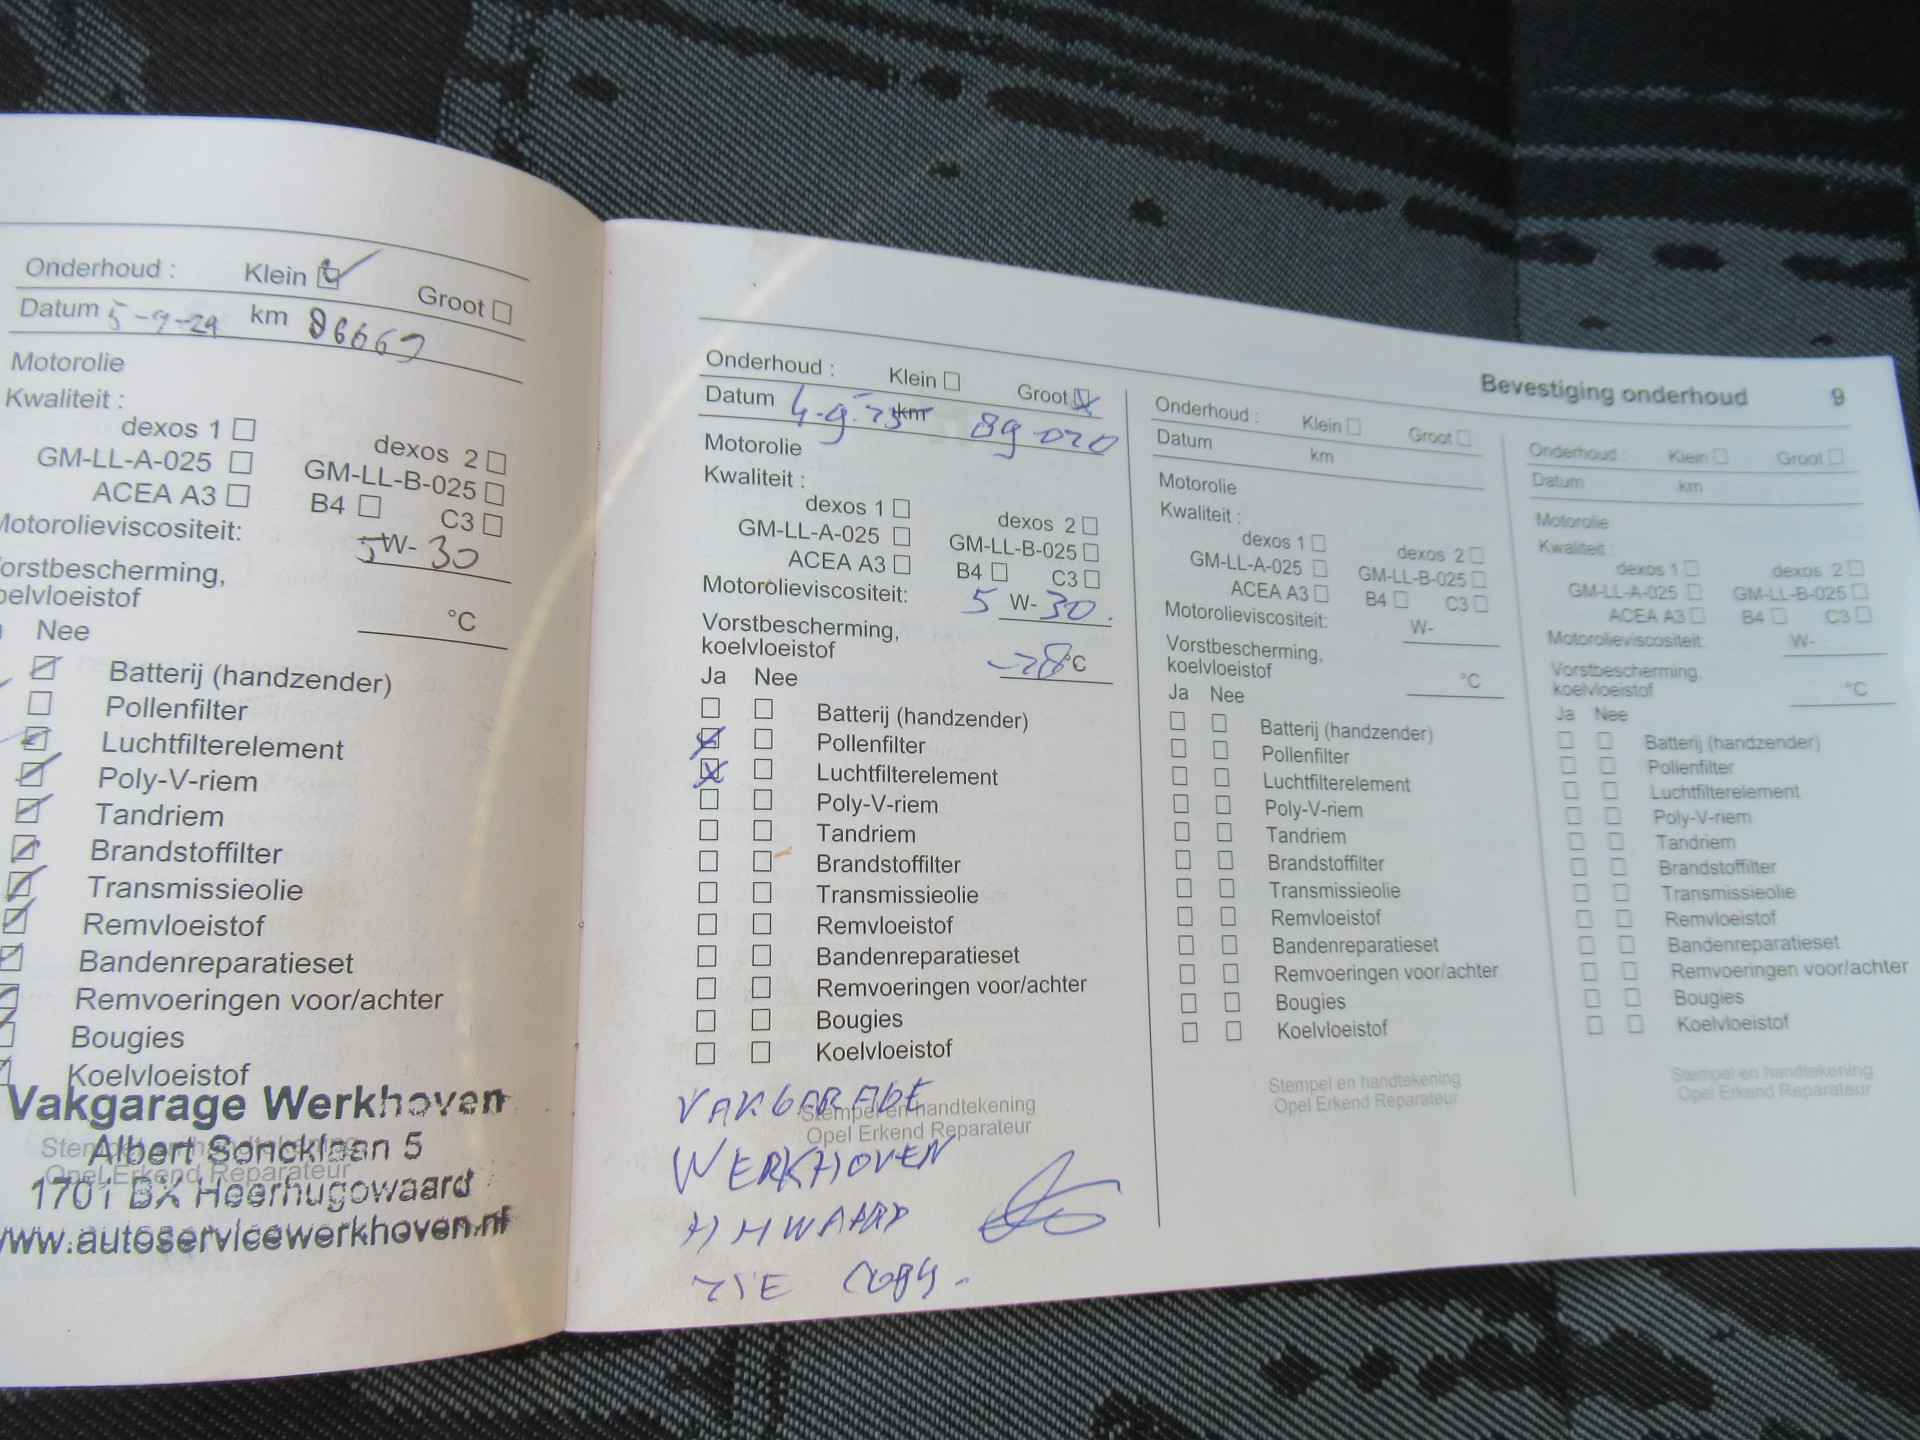 Onderhoud : Klein Groot
Datum 5-9-24 km 86667
Motorolie
Kwaliteit :
dexos 1 dexos 2
GM-LL-A-025 GM-LL-B-025
ACEA A3 B4 C3
Motorolieviscositeit:
5W-30
orstbescherming,
oelvloeistof °C
Nee
Batterij (handzender)
Pollenfilter
Luchtfilterelement
Poly-V-riem
Tandriem
Brandstoffilter
Transmissieolie
Remvloeistof
Bandenreparatieset
Remvoeringen voor/achter
Bougies
Koelvloeistof
Vakgarage Werkhoven
Stempel en handtekening
Albert Soncklaan 5
Opel Erkend Reparateur
1701 BX Heerhugowaard
www.autoservicewerkhoven.nl
Onderhoud : Klein Groot
Datum 4-9-25 km 89-020
Motorolie
Kwaliteit :
dexos 1 dexos 2
GM-LL-A-025 GM-LL-B-025
ACEA A3 B4 C3
Motorolieviscositeit: 5 W-30.
Vorstbescherming,
koelvloeistof -28°C
Ja Nee
Batterij (handzender)
Pollenfilter
Luchtfilterelement
Poly-V-riem
Tandriem
Brandstoffilter
Transmissieolie
Remvloeistof
Bandenreparatieset
Remvoeringen voor/achter
Bougies
Koelvloeistof
VAKGARAGE
Stempel en handtekening
Opel Erkend Reparateur
WERKHOVEN
HHWAARD
ZIE COPY.
Bevestiging onderhoud 9
Onderhoud : Klein Groot
Datum km
Motorolie
Kwaliteit :
dexos 1 dexos 2
GM-LL-A-025 GM-LL-B-025
ACEA A3 B4 C3
Motorolieviscositeit: W-
Vorstbescherming,
koelvloeistof °C
Ja Nee
Batterij (handzender)
Pollenfilter
Luchtfilterelement
Poly-V-riem
Tandriem
Brandstoffilter
Transmissieolie
Remvloeistof
Bandenreparatieset
Remvoeringen voor/achter
Bougies
Koelvloeistof
Stempel en handtekening
Opel Erkend Reparateur
Onderhoud : Klein Groot
Datum km
Motorolie
Kwaliteit :
dexos 1 dexos 2
GM-LL-A-025 GM-LL-B-025
ACEA A3 B4 C3
Motorolieviscositeit: W-
Vorstbescherming,
koelvloeistof °C
Ja Nee
Batterij (handzender)
Pollenfilter
Luchtfilterelement
Poly-V-riem
Tandriem
Brandstoffilter
Transmissieolie
Remvloeistof
Bandenreparatieset
Remvoeringen voor/achter
Bougies
Koelvloeistof
Stempel en handtekening
Opel Erkend Reparateur